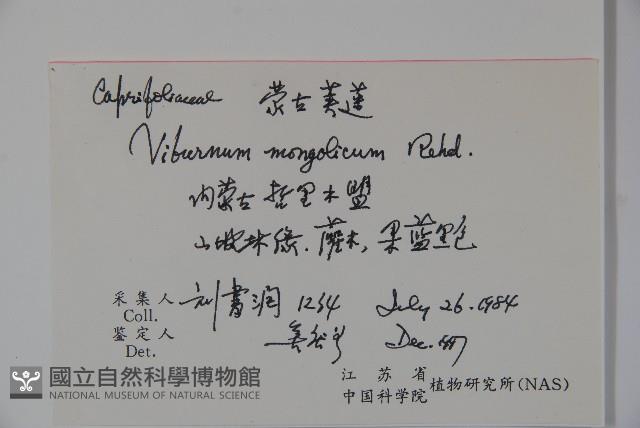 Caprifoliaceae 蒙古荚蒾
Viburnum mongolicum Rehd.
内蒙古哲里木盟
山坡林缘.灌木,果蓝黑色
采集人 刘书润 1234 July 26.1984
Coll.
鉴定人 Dec.
Det.
江苏省
中国科学院 植物研究所(NAS)
國立自然科學博物館
NATIONAL MUSEUM OF NATURAL SCIENCE